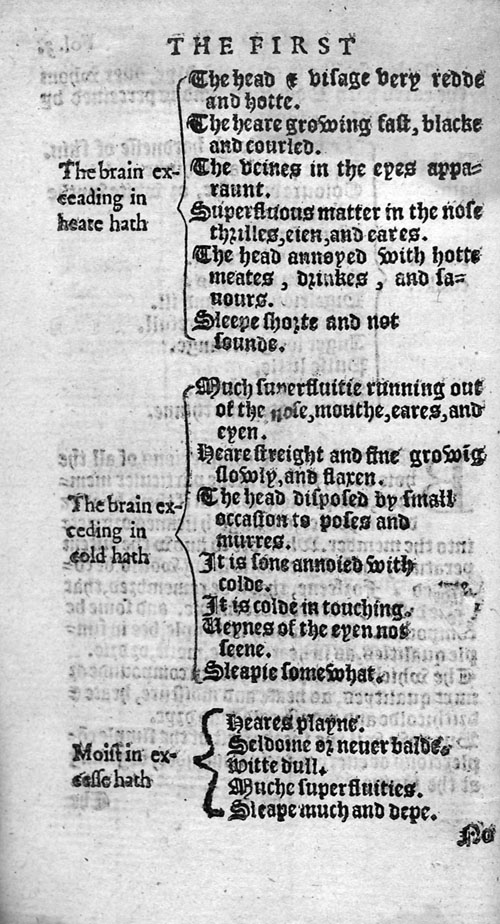 THE FIRST
The brain ex-
ceading in
heate hath
The head & visage very redde
and hotte.
The heare growing fast, blacke
and courled.
The veines in the eyes appa-
raunt.
Superfluous matter in the nose
thrilles, eien, and eares.
The head annoyed with hotte
meates, drinkes, and sa-
uours.
Sleepe shorte and not
sounde.
The brain ex-
ceding in
cold hath
Much superfluitie running out
of the nose, mouthe, eares, and
eyen.
Heare streight and fine growig
slowly, and flaxen.
The head disposed by small
occasion to poses and
murres.
It is sone annoied with
colde.
It is colde in touching.
Ueynes of the eyen not
seene.
Sleapie somewhat.
Moist in ex-
cesse hath
Heares playne.
Seldome or neuer balde.
Witte dull.
Muche superfluities.
Sleape much and depe.
No